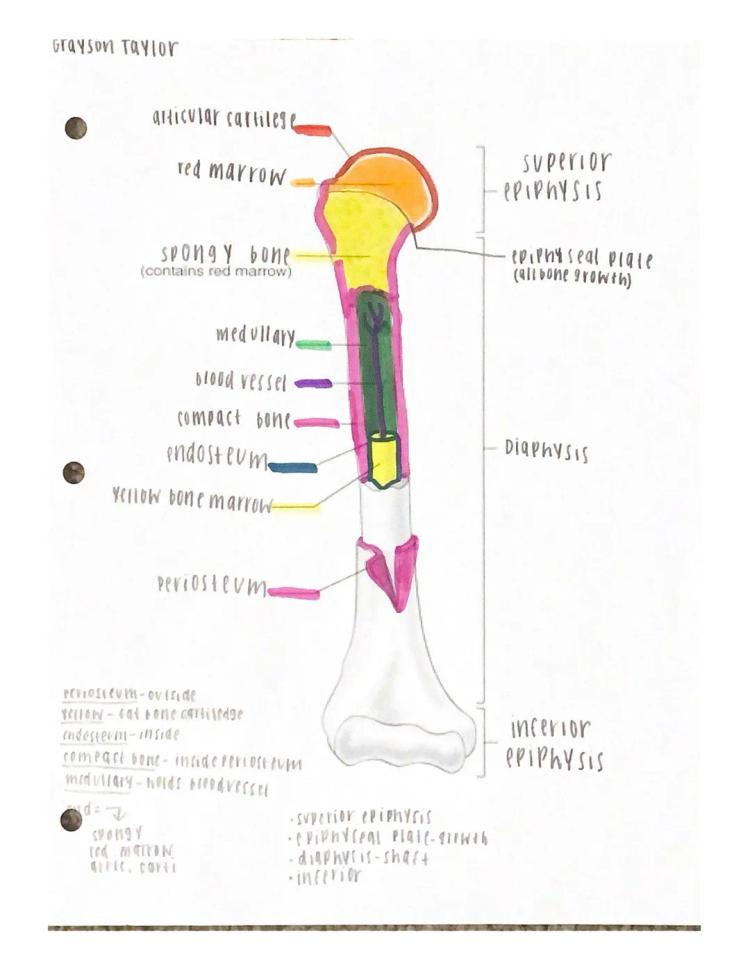 Grayson Taylor
articular cartilege
red marrow
superior
epiphysis
spongy bone
(contains red marrow)
epiphyseal plate
(all bone growth)
medullary
blood vessel
compact bone
endosteum
Diaphysis
yellow bone marrow
periosteum
periosteum-outside
yellow-fat bone cartiledge
endosteum-inside
compact bone-inside periosteum
medullary-holds bloodvessel
inferior
epiphysis
spongy
red marrow
artic. carti
•superior epiphysis
•epiphyseal plate-growth
•diaphysis-shaft
•inferior